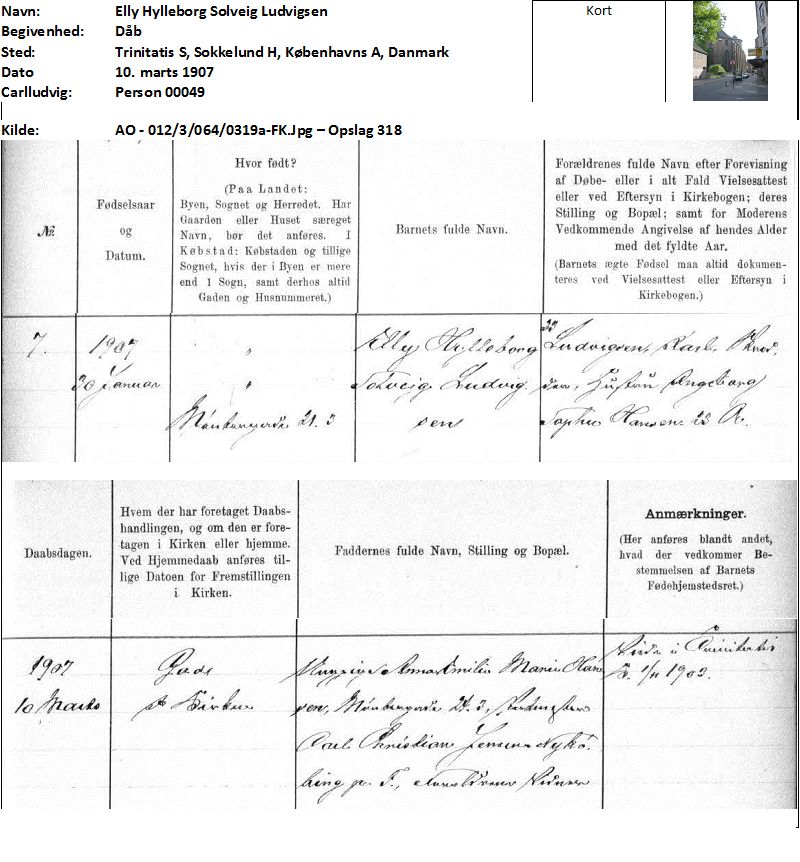 Navn: Elly Hylleborg Solveig Ludvigsen
Kort
Begivenhed: Dåb
Sted: Trinitatis S, Sokkelund H, Københavns A, Danmark
Dato 10. marts 1907
Carlludvig: Person 00049
Kilde: AO - 012/3/064/0319a-FK.Jpg – Opslag 318
№
Fødselsaar
og
Datum.
Hvor født?
(Paa Landet:
Byen, Sognet og Herredet. Har
Gaarden eller Huset særeget
Navn, bør det anføres. I
Købstad: Købstaden og tillige
Sognet, hvis der i Byen er mere
end 1 Sogn, samt derhos altid
Gaden og Husnummeret.)
Barnets fulde Navn.
Forældrenes fulde Navn efter Forevisning
af Døbe- eller i alt Fald Vielsesattest
eller ved Eftersyn i Kirkebogen; deres
Stilling og Bopæl; samt for Moderens
Vedkommende Angivelse af hendes Alder
med det fyldte Aar.
(Barnets ægte Fødsel maa altid dokumen-
teres ved Vielsesattest eller Eftersyn i
Kirkebogen.)
7.
1907
30 Januar
" 
"
21. 3
Elly Hylleborg
Solveig Ludvig
sen
Ludvigsen, Karl,
Hustru Ingeborg
Sophie Hansen 23 A.
Daabsdagen.
Hvem der har foretaget Daabs-
handlingen, og om den er fore-
tagen i Kirken eller hjemme.
Ved Hjemmedaab anføres til-
lige Datoen for Fremstillingen
i Kirken.
Faddernes fulde Navn, Stilling og Bopæl.
Anmærkninger.
(Her anføres blandt andet,
hvad der vedkommer Be-
stemmelsen af Barnets
Fødehjemstedsret.)
1907
10 Marts
Gade
Kirken
Anna Emilie Marie Han
sen,
Carl Christian Jensen Nykø
bing p. F., Forældrene
Viede i Trinitatis